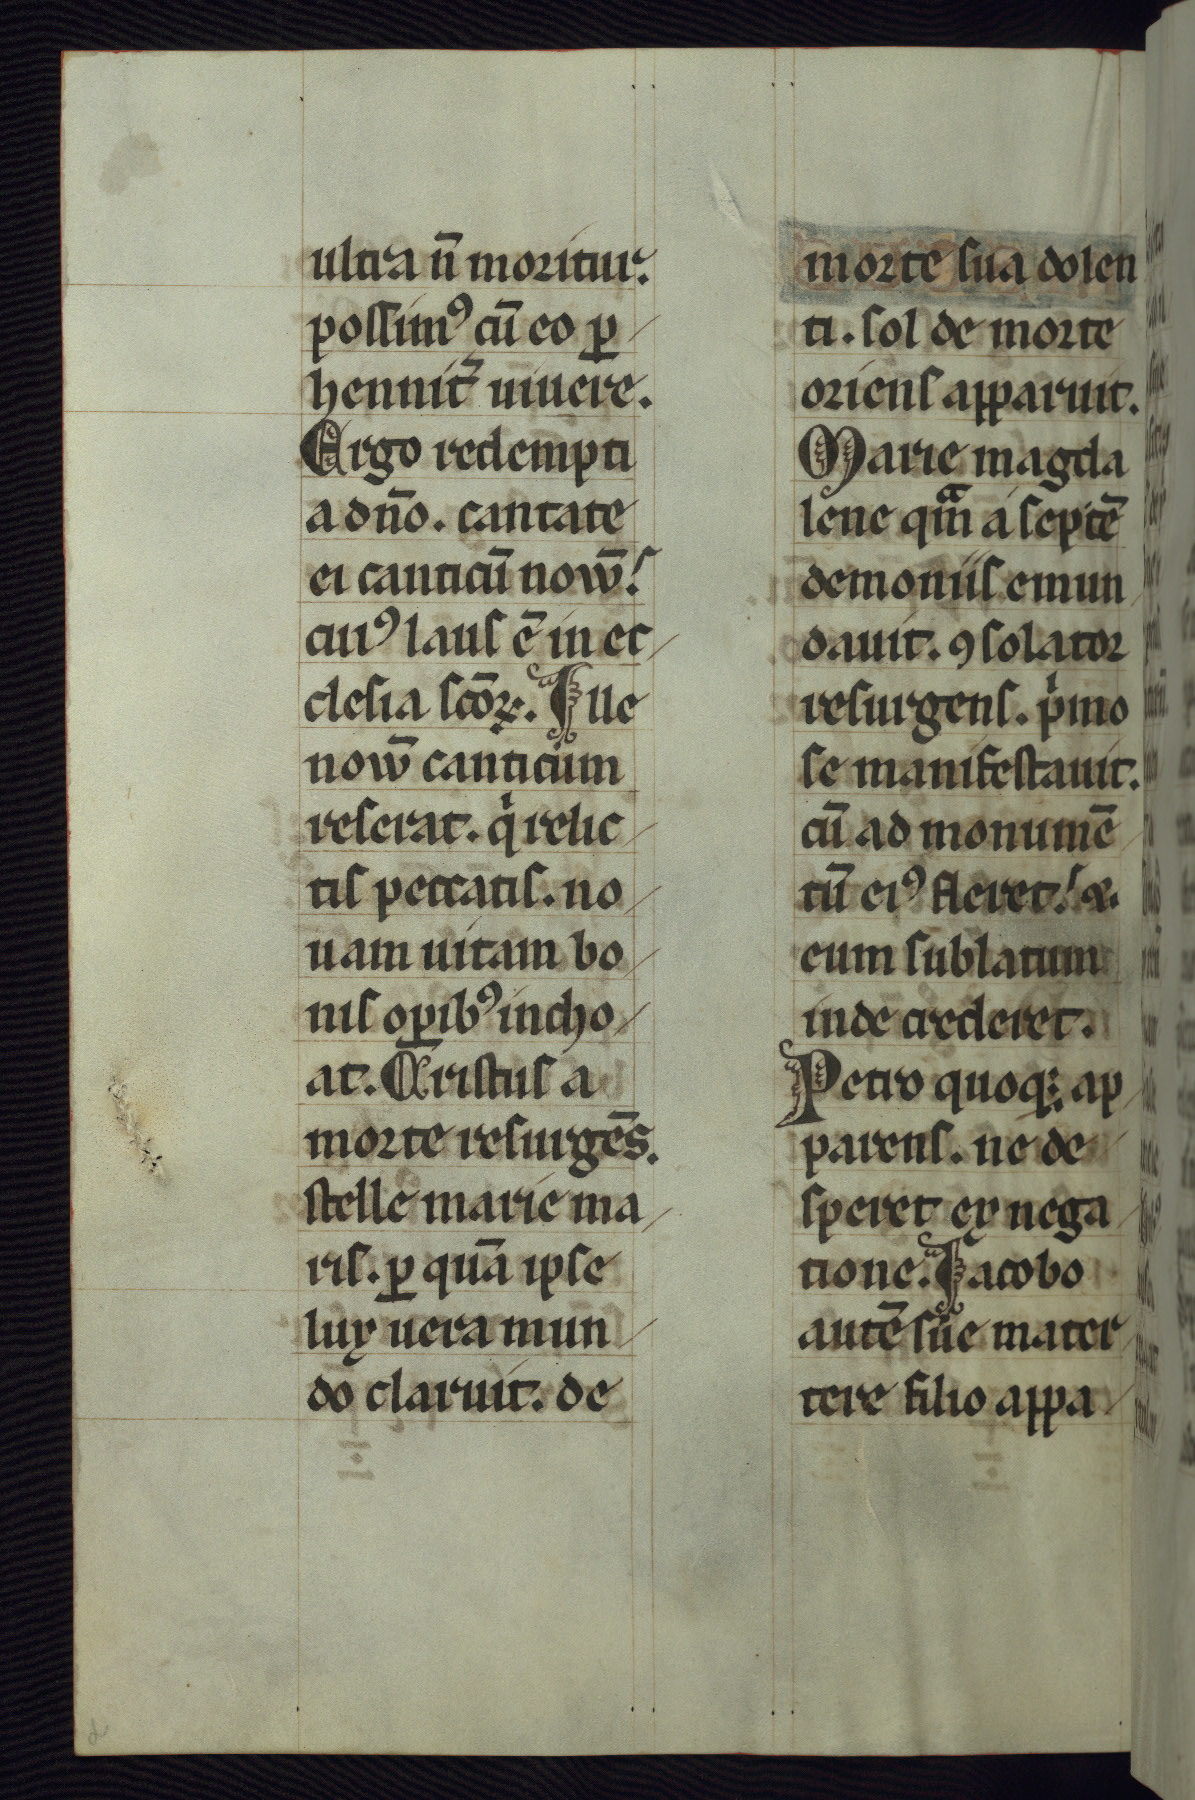 ultra n̄ moritur.
possimꝰ cū eo ꝑ
hennit᷑ uiuere.
Ergo redempti
a dño. cantate
ei canticū nouū!
cuiꝰ laus ē in ec
clesia scōꝝ. Ille
nouū canticum
reserat. qͥ relic
tis peccatis. no
uam uitam bo
nis oꝑibꝰ incho
at. Cristus a
morte resurgēs.
stelle marie ma
ris. ꝑ quā ipse
lux uera mun
do claruit. de
morte sua dolen
ti. sol de morte
oriens apparuit.
Marie magda
lene qᵃm a septē
demoniis emun
dauit. ꝯsolator
resurgens. pͥmo
se manifestauit.
cū ad monumē
tū eiꝰ fleret! &
eum sublatum
inde crederet.
Petro quoqꝫ ap
parens. ne de
speret ex nega
tione. Iacobo
autē sue mater
tere filio appa